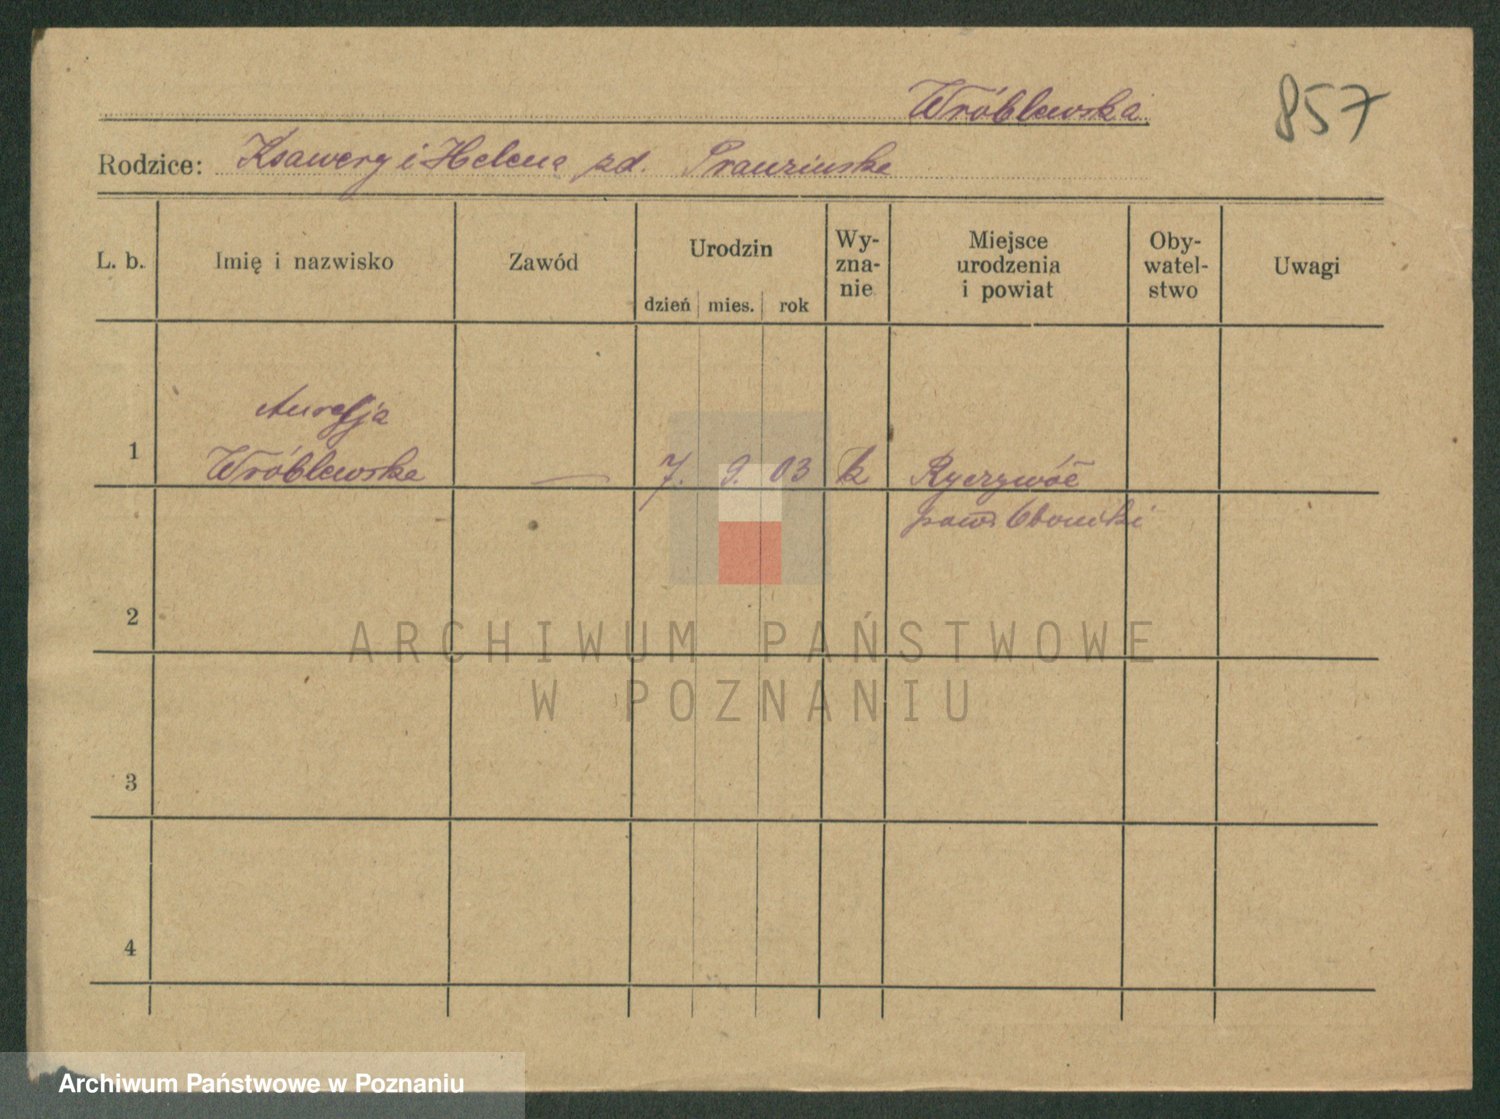 Wróblewska
857
Rodzice: Ksawery i Helena zd.
L. b. Imię i nazwisko Zawód Urodzin Wy-zna-nie Miejsce urodzenia i powiat Oby-watel-stwo Uwagi
dzień mies. rok
Aurelja
1 Wróblewska — 7. 9. 03 k Ryczywół
pow. Oborniki
2
ARCHIWUM PAŃSTWOWE
W POZNANIU
3
4
Archiwum Państwowe w Poznaniu